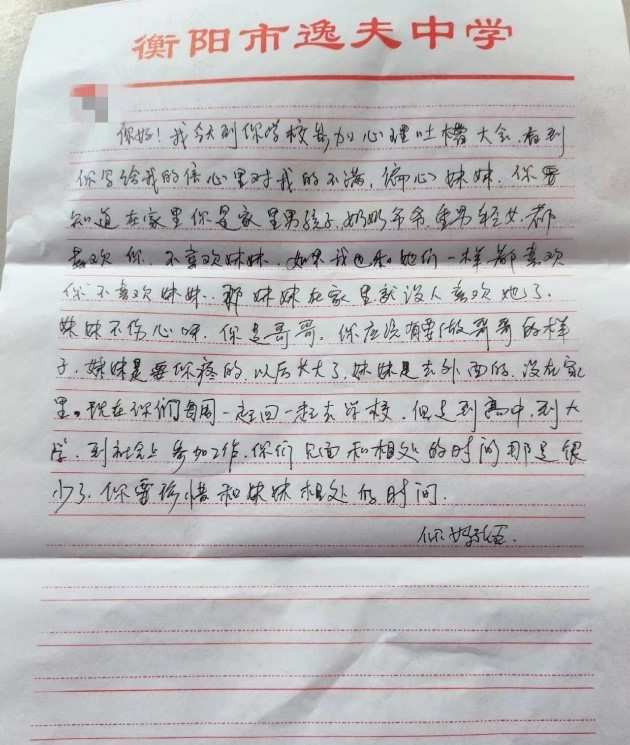 衡阳市逸夫中学
你好！我今天到你学校参加心理吐槽大会.看到
你写给我的信心里对我的不满，偏心妹妹.你要
知道在家里你是家里男孩子，奶奶爷爷.重男轻女.都
喜欢你.不喜欢妹妹.如果我也和她们一样都喜欢
你不喜欢妹妹.那妹妹在家里就没人喜欢她了.
妹妹不伤心呀.你是哥哥.你应该有要做哥哥的样
子.妹妹是要你疼的.以后长大了.妹妹是去外面的.没在家
里。现在你们每周一起回一起去学校.但是到高中.到大
学.到社会上参加工作.你们见面和相处的时间那是很
少了.你要珍惜和妹妹相处的时间.